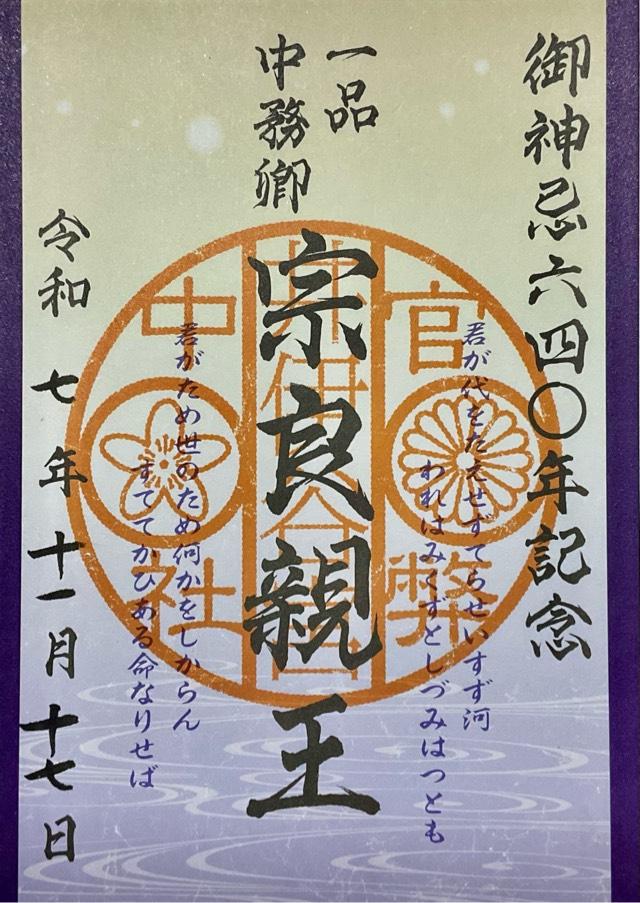 御神忌六四〇年記念
君が代をたえせずてらせいすず河
われはみくずとしづみはつとも
一品
中務卿
宗良親王
君がため世のため何かをしからん
すててかひある命なりせば
令和七年十一月十七日
官幣
井伊谷宮
中社